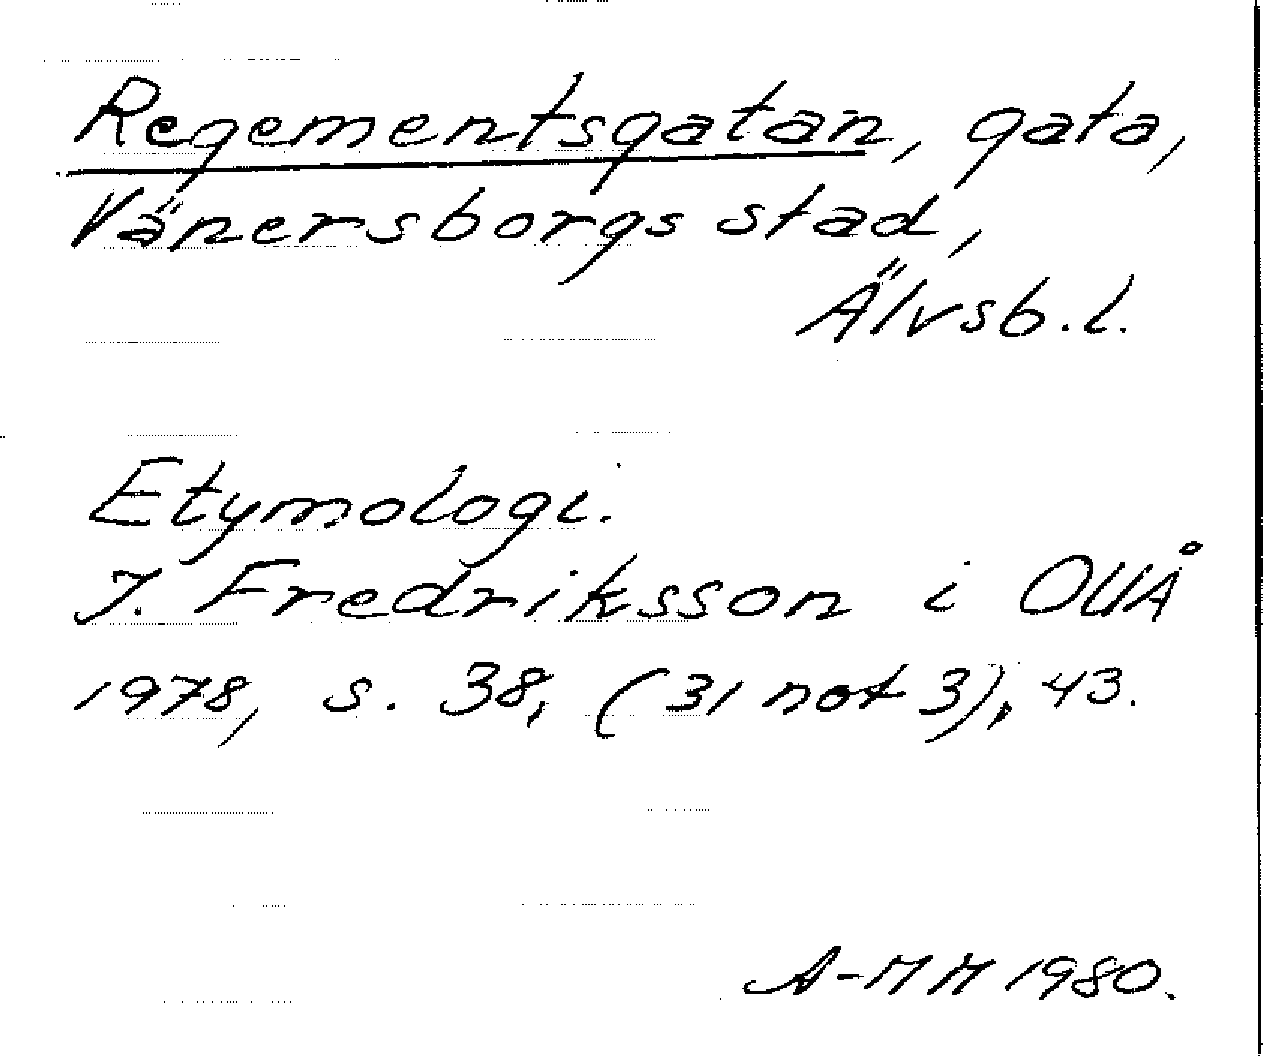 Regementsgatan, gata,
Vänersborgs stad,
Älvsb. l.
Etymologi.
I. Fredriksson i OUÅ
1978, s. 38, (31 not 3), 43.
A-MH 1980.